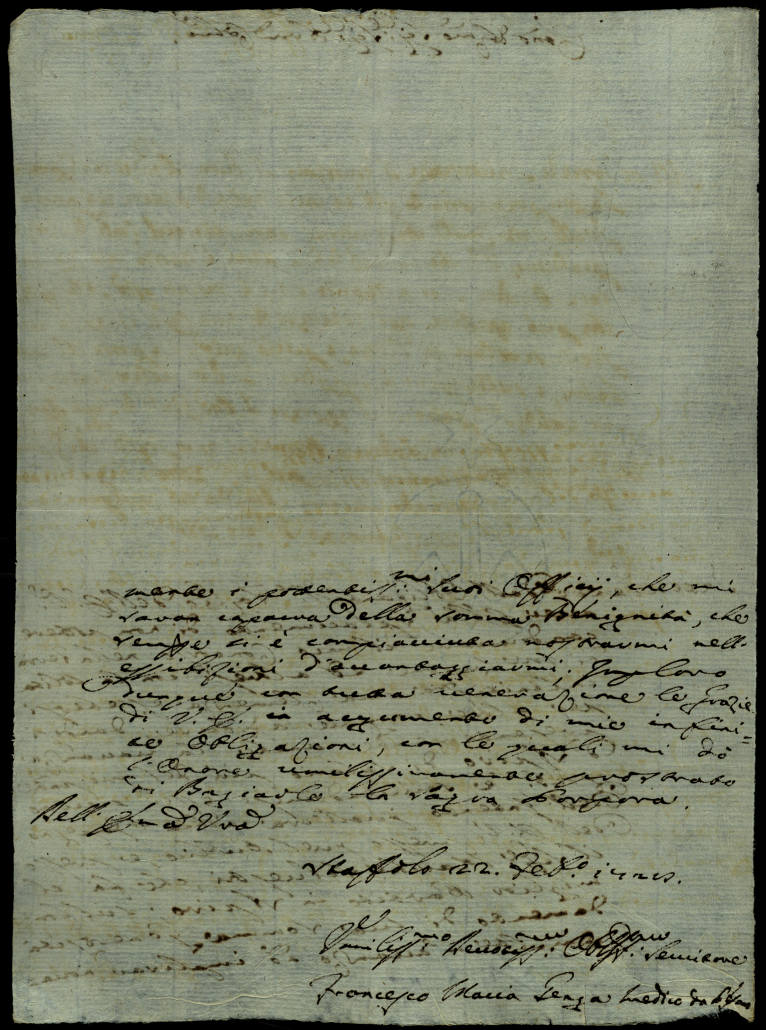 mente i potentiss.mi suoi Officij, che mi
saran caparra della somma Benignità, che
sempre si è compiaciuta mostrarmi nell'
essibizioni d'avantaggiarmi; Imploro
dunque con tutta venerazione le Grazie
di V. E. in augumento di mie infini=
te Obligazioni, con le quali mi dò
l'Onore umilissimamente prostrato
di Bagiarle la Sagra Porpora.
Dell'
Staffolo 22. Febb.o
Umiliss.mo Devotiss.mo Obblig.mo Servitore
Francesco Maria Genga Medico